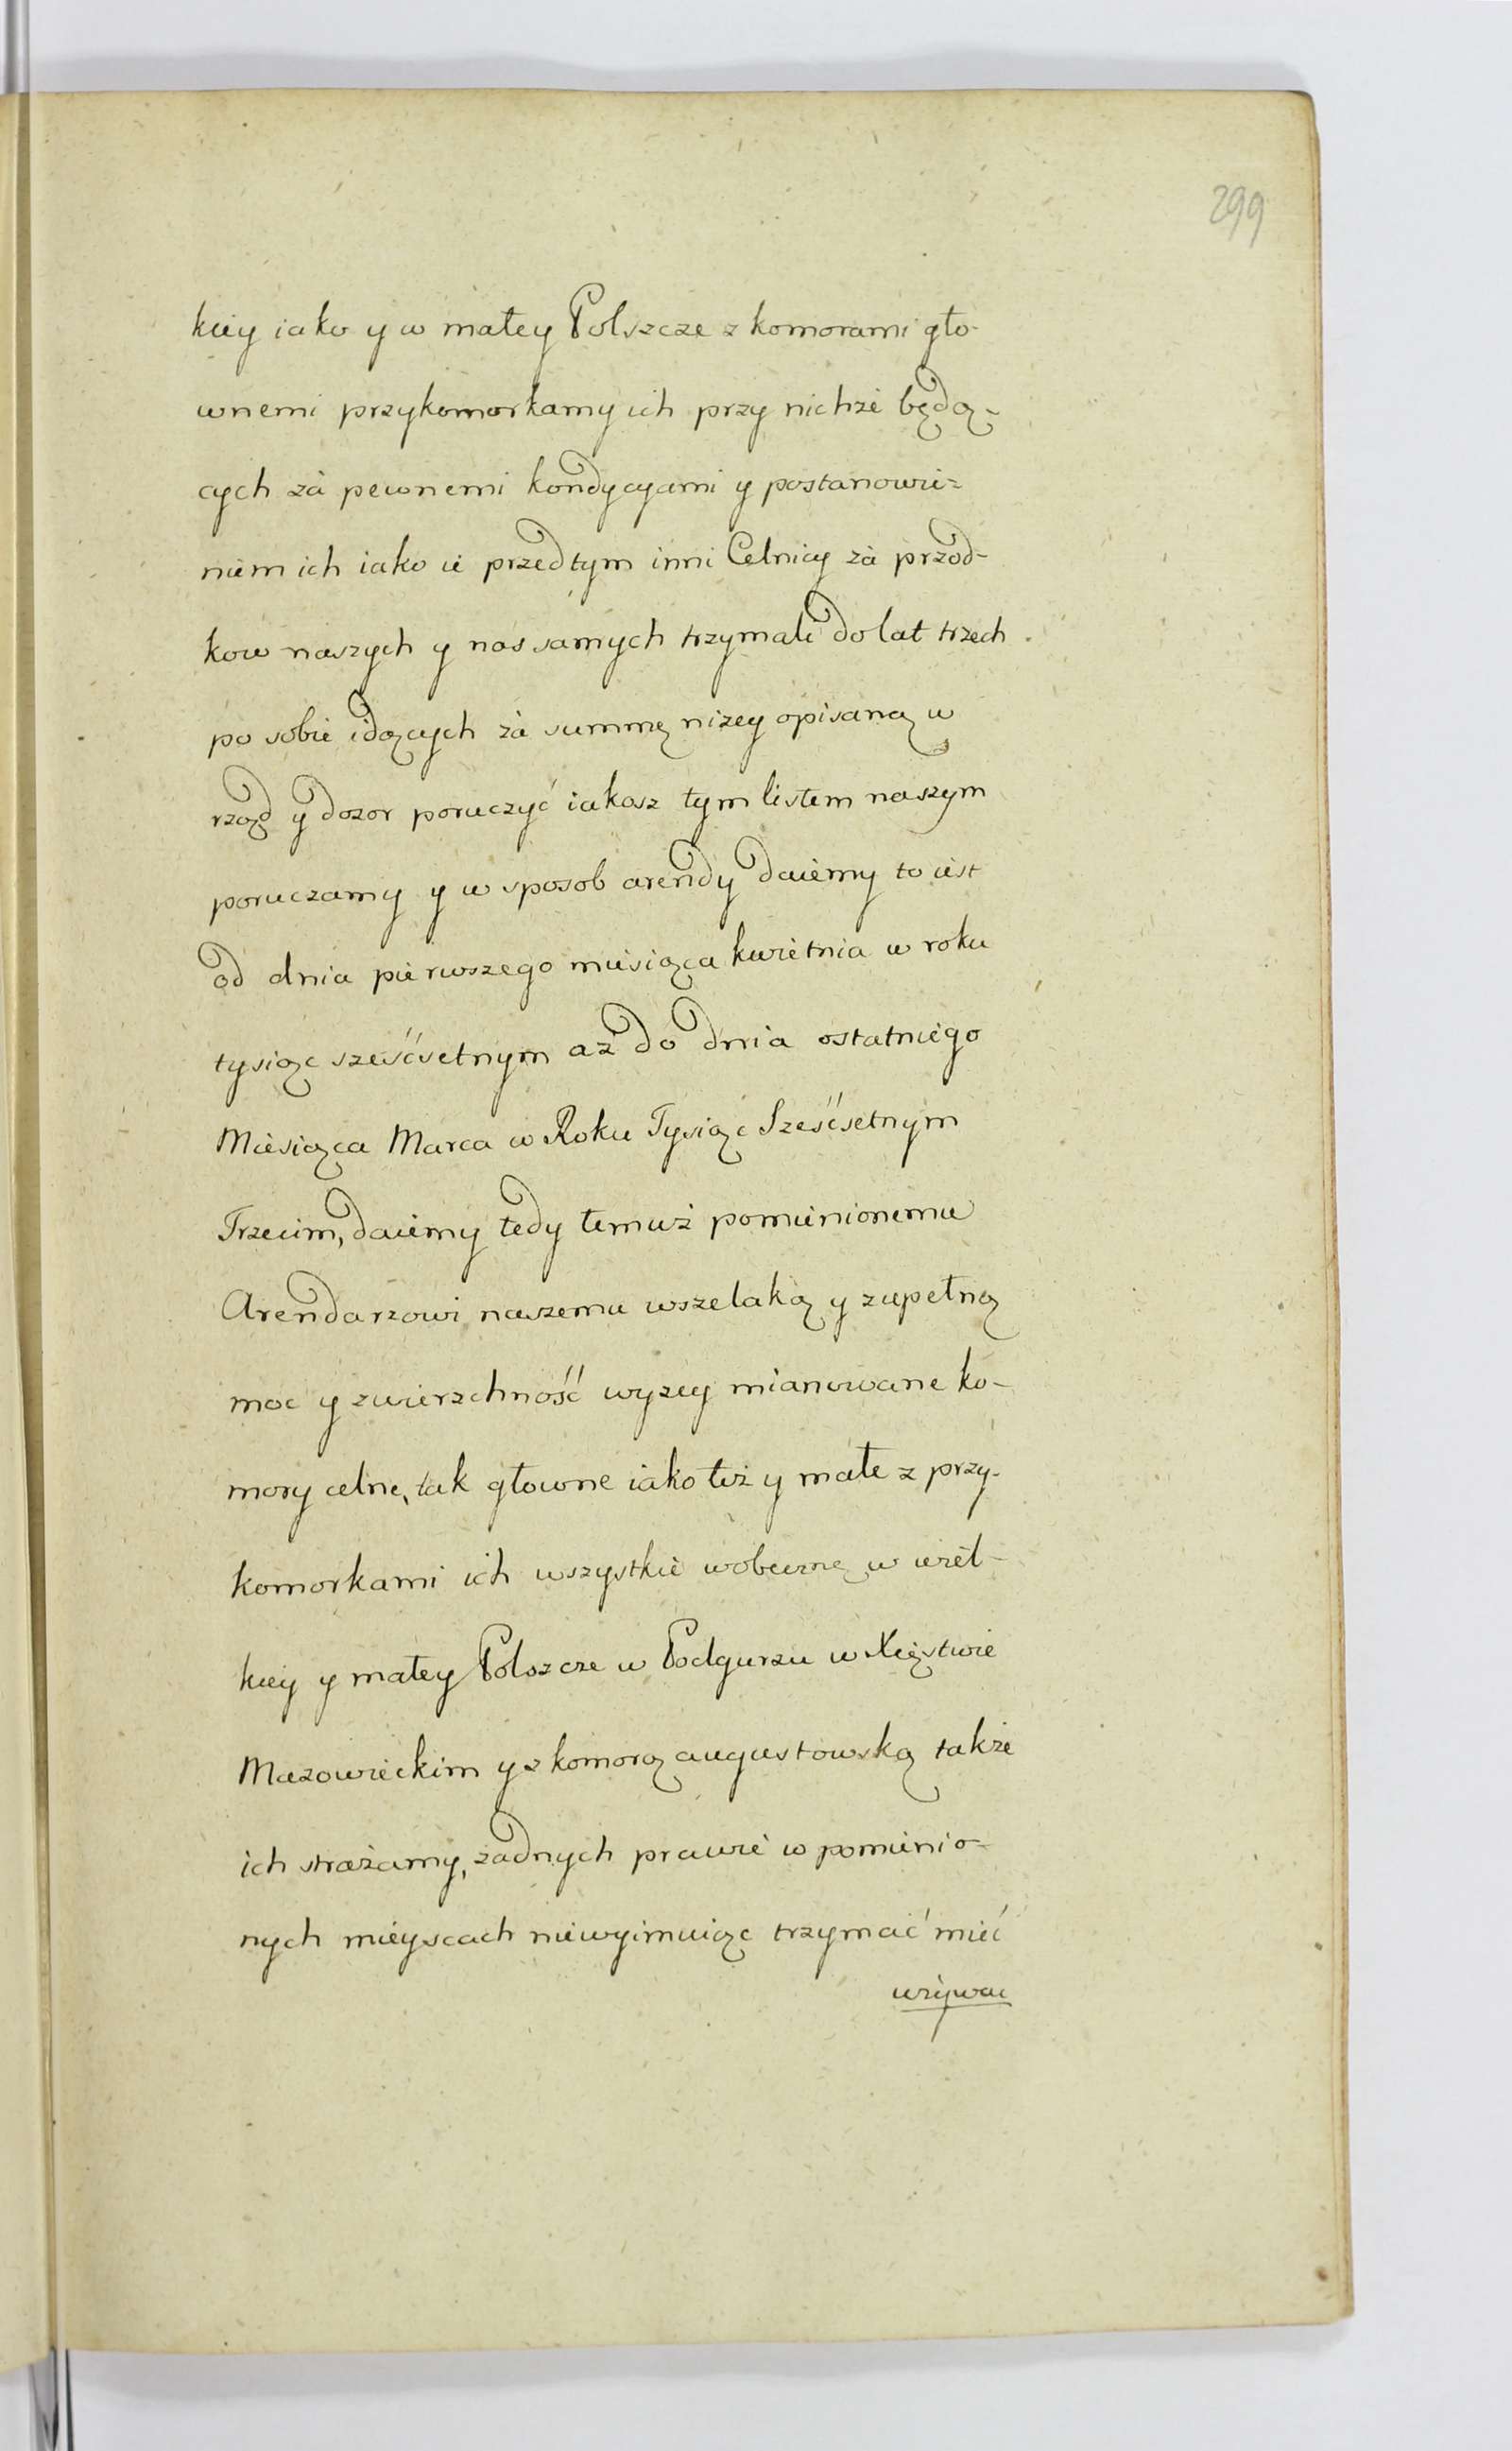 299
kiey iako y w małey Polszcze z komorami gło-
wnemi przykomorkamy ich przy nichże będą-
cych za pewnemi kondycyami y postanowie-
niem ich iako ie przedtym inni Celnicy za przod-
kow naszych y nas samych trzymali do lat trzech
po sobie idących za summę niżey opisaną w
rząd y dozor poruczyć iakosz tym listem naszym
poruczamy y w sposob arendy daiemy to iest
od dnia pierwszego miesiąca kwietnia w roku
tysiąc sześćsetnym aż do dnia ostatniego
Miesiąca Marca w Roku Tysiąc Sześćsetnym
Trzecim, daiemy tedy temuż pomienionemu
Arendarzowi naszemu wszelaką y zupełną
moc y zwierzchność wyzey mianowane ko-
mory celne, tak głowne iako też y małe z przy-
komorkami ich wszystkie wobec w wiel-
kiey y małey Polszcze w Podgurzu w Xięstwie
Mazowieckim y z komorą augustowską także
ich strażamy, żadnych prawie w pomienio-
nych mieyscach niewyimuiąc trzymać mieć
używać